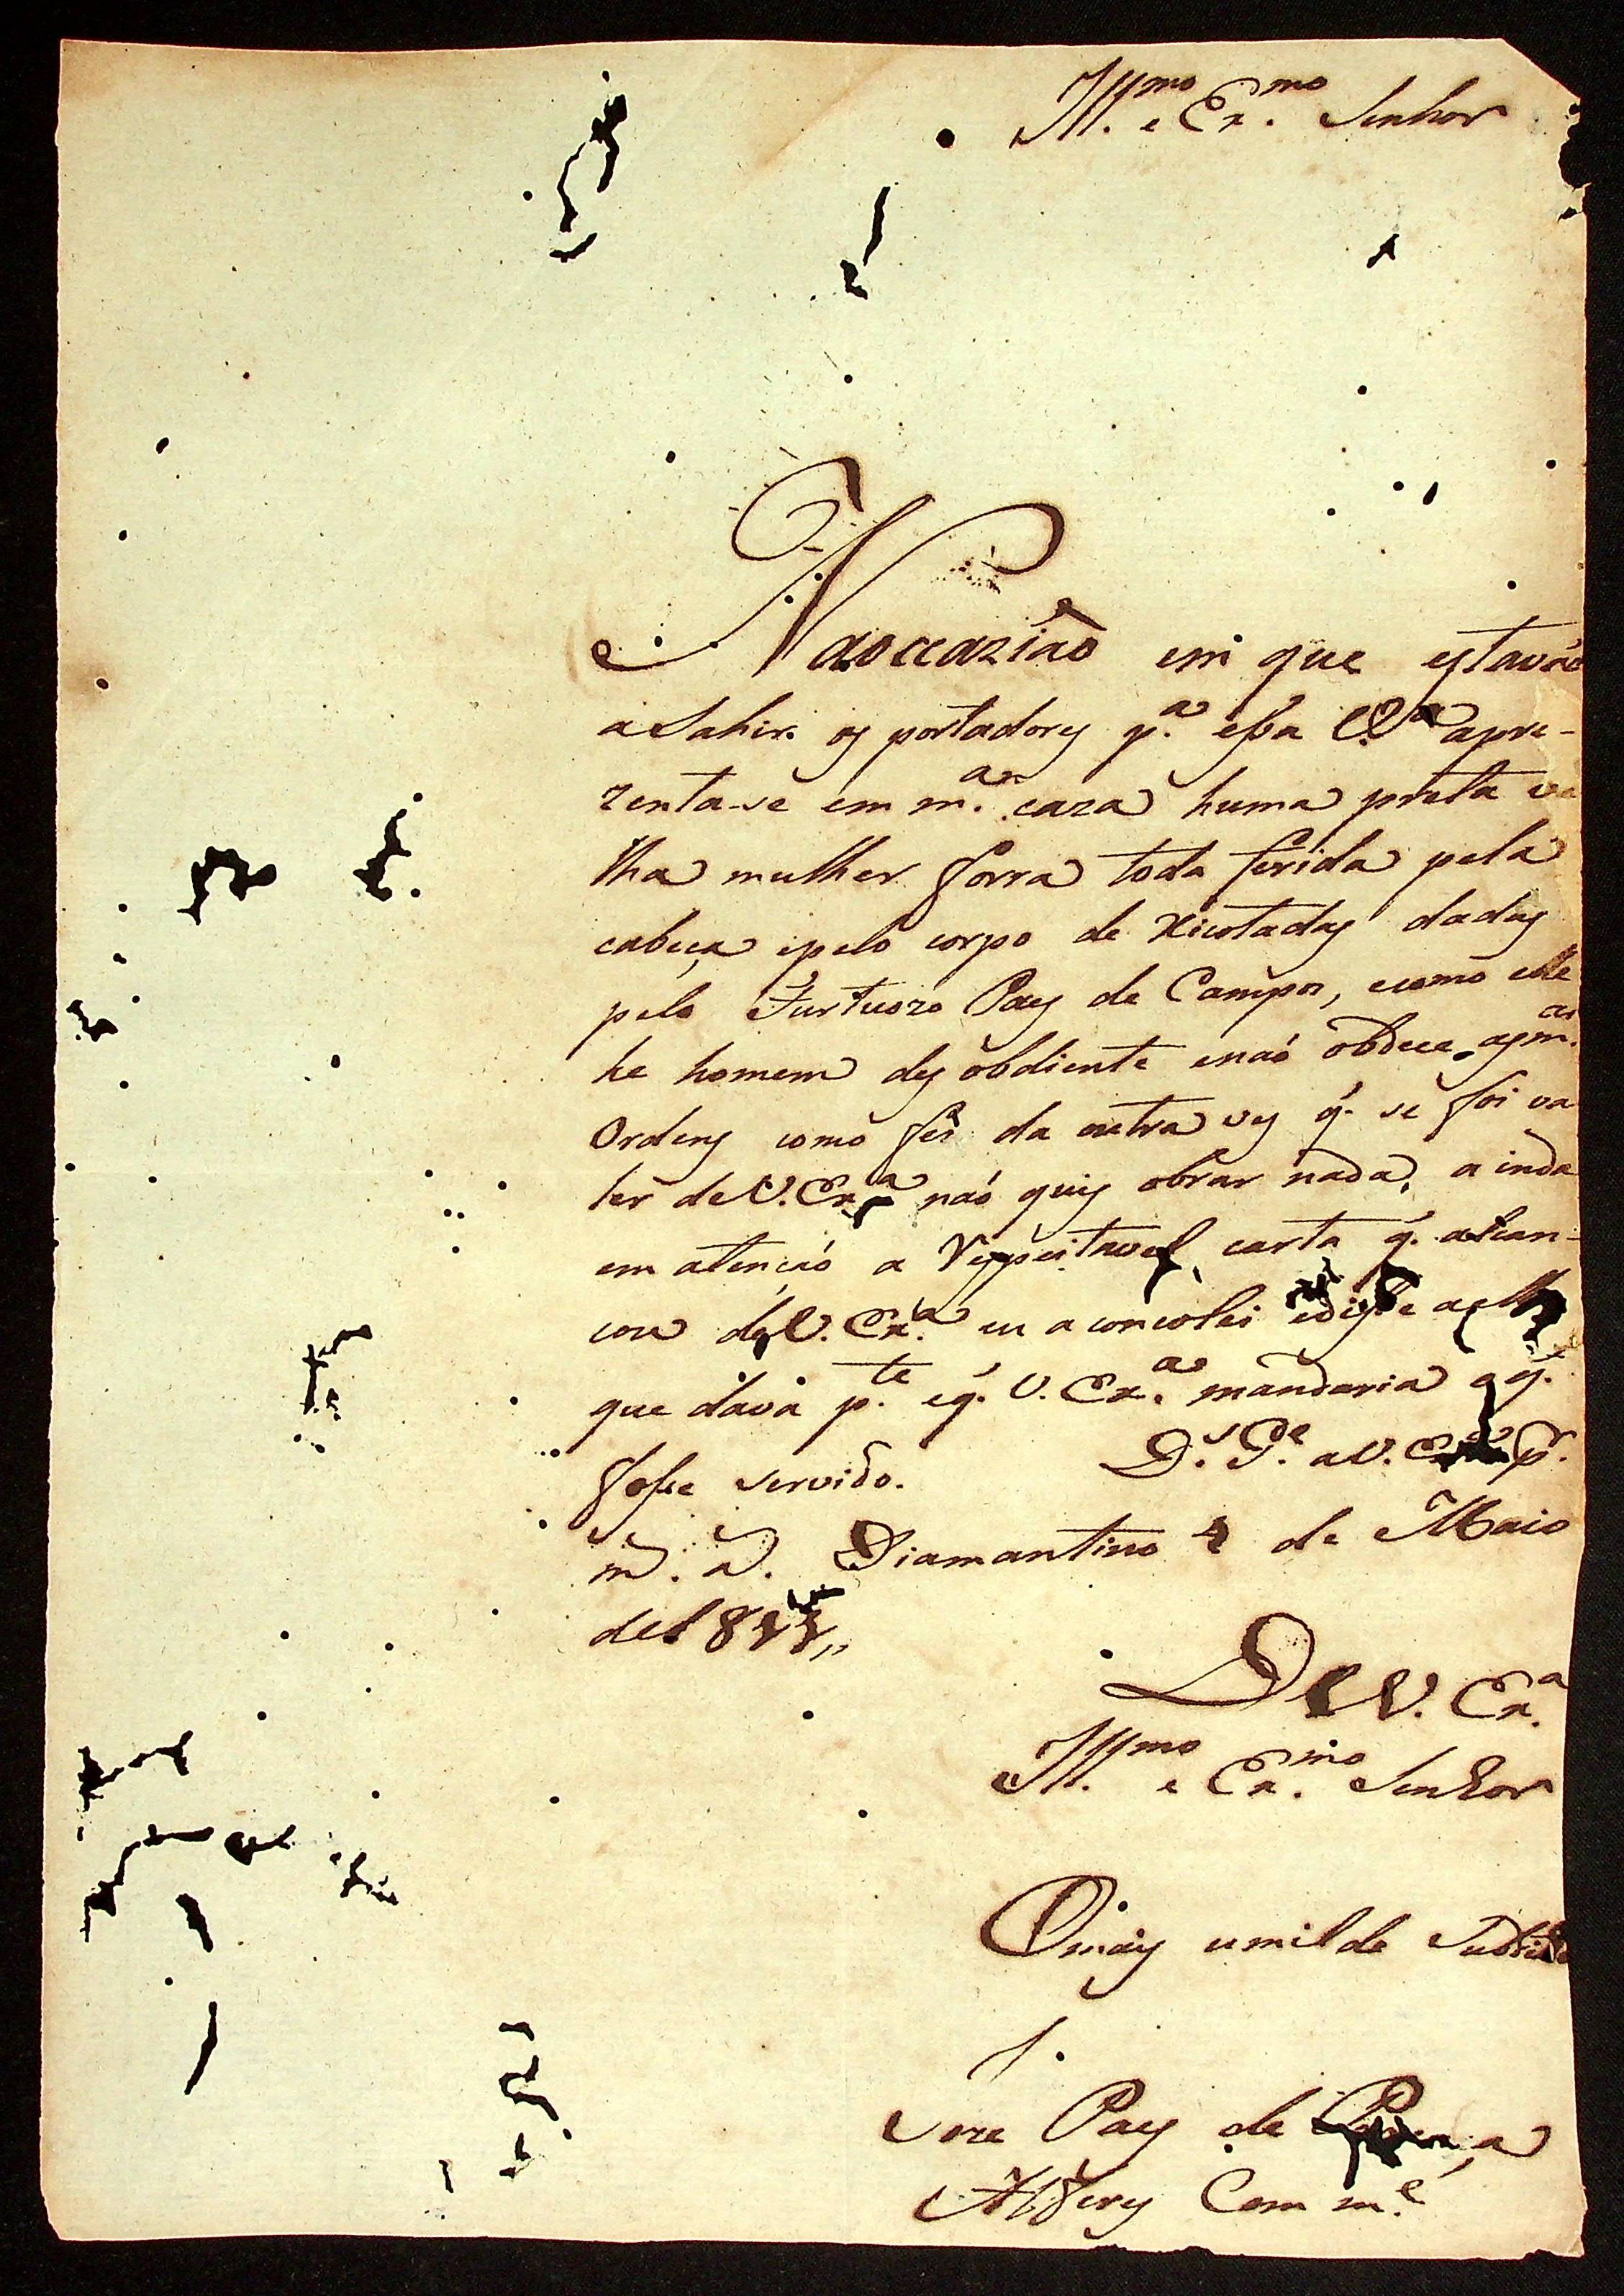 Ill.mo e Ex.mo Senhor
Naoccazião em que estavão
a Sahir os portadores p.a essa V.a apre-
zenta-se em m.a caza huma preta ve
lha mulher forra toda ferida pela
cabeça epelo corpo de Xicotadas dadas
pelo Furtuozo Paes de Campos, ecomo elle
he homem des obdiente enaó obdece as m.as
Ordens como fes da outra ves q. se foi va
ler de V. Ex.a naó quis obrar nada, a inda
em atençaó a Respeitavel carta q. alcan-
cou de V. Ex.a eu a concolei edisse a ella
que dava p.te eq. V. Ex.a mandaria o q.
fosse servido. D.s G.de a V. Ex.a p.r
m. a. Diamantino 4 de Maio
de 1811,,
De V. Ex.a
Ill.mo e Ex.mo Senhor
Omais umilde Subdito
Joze Paes de
Alferes Com m.e